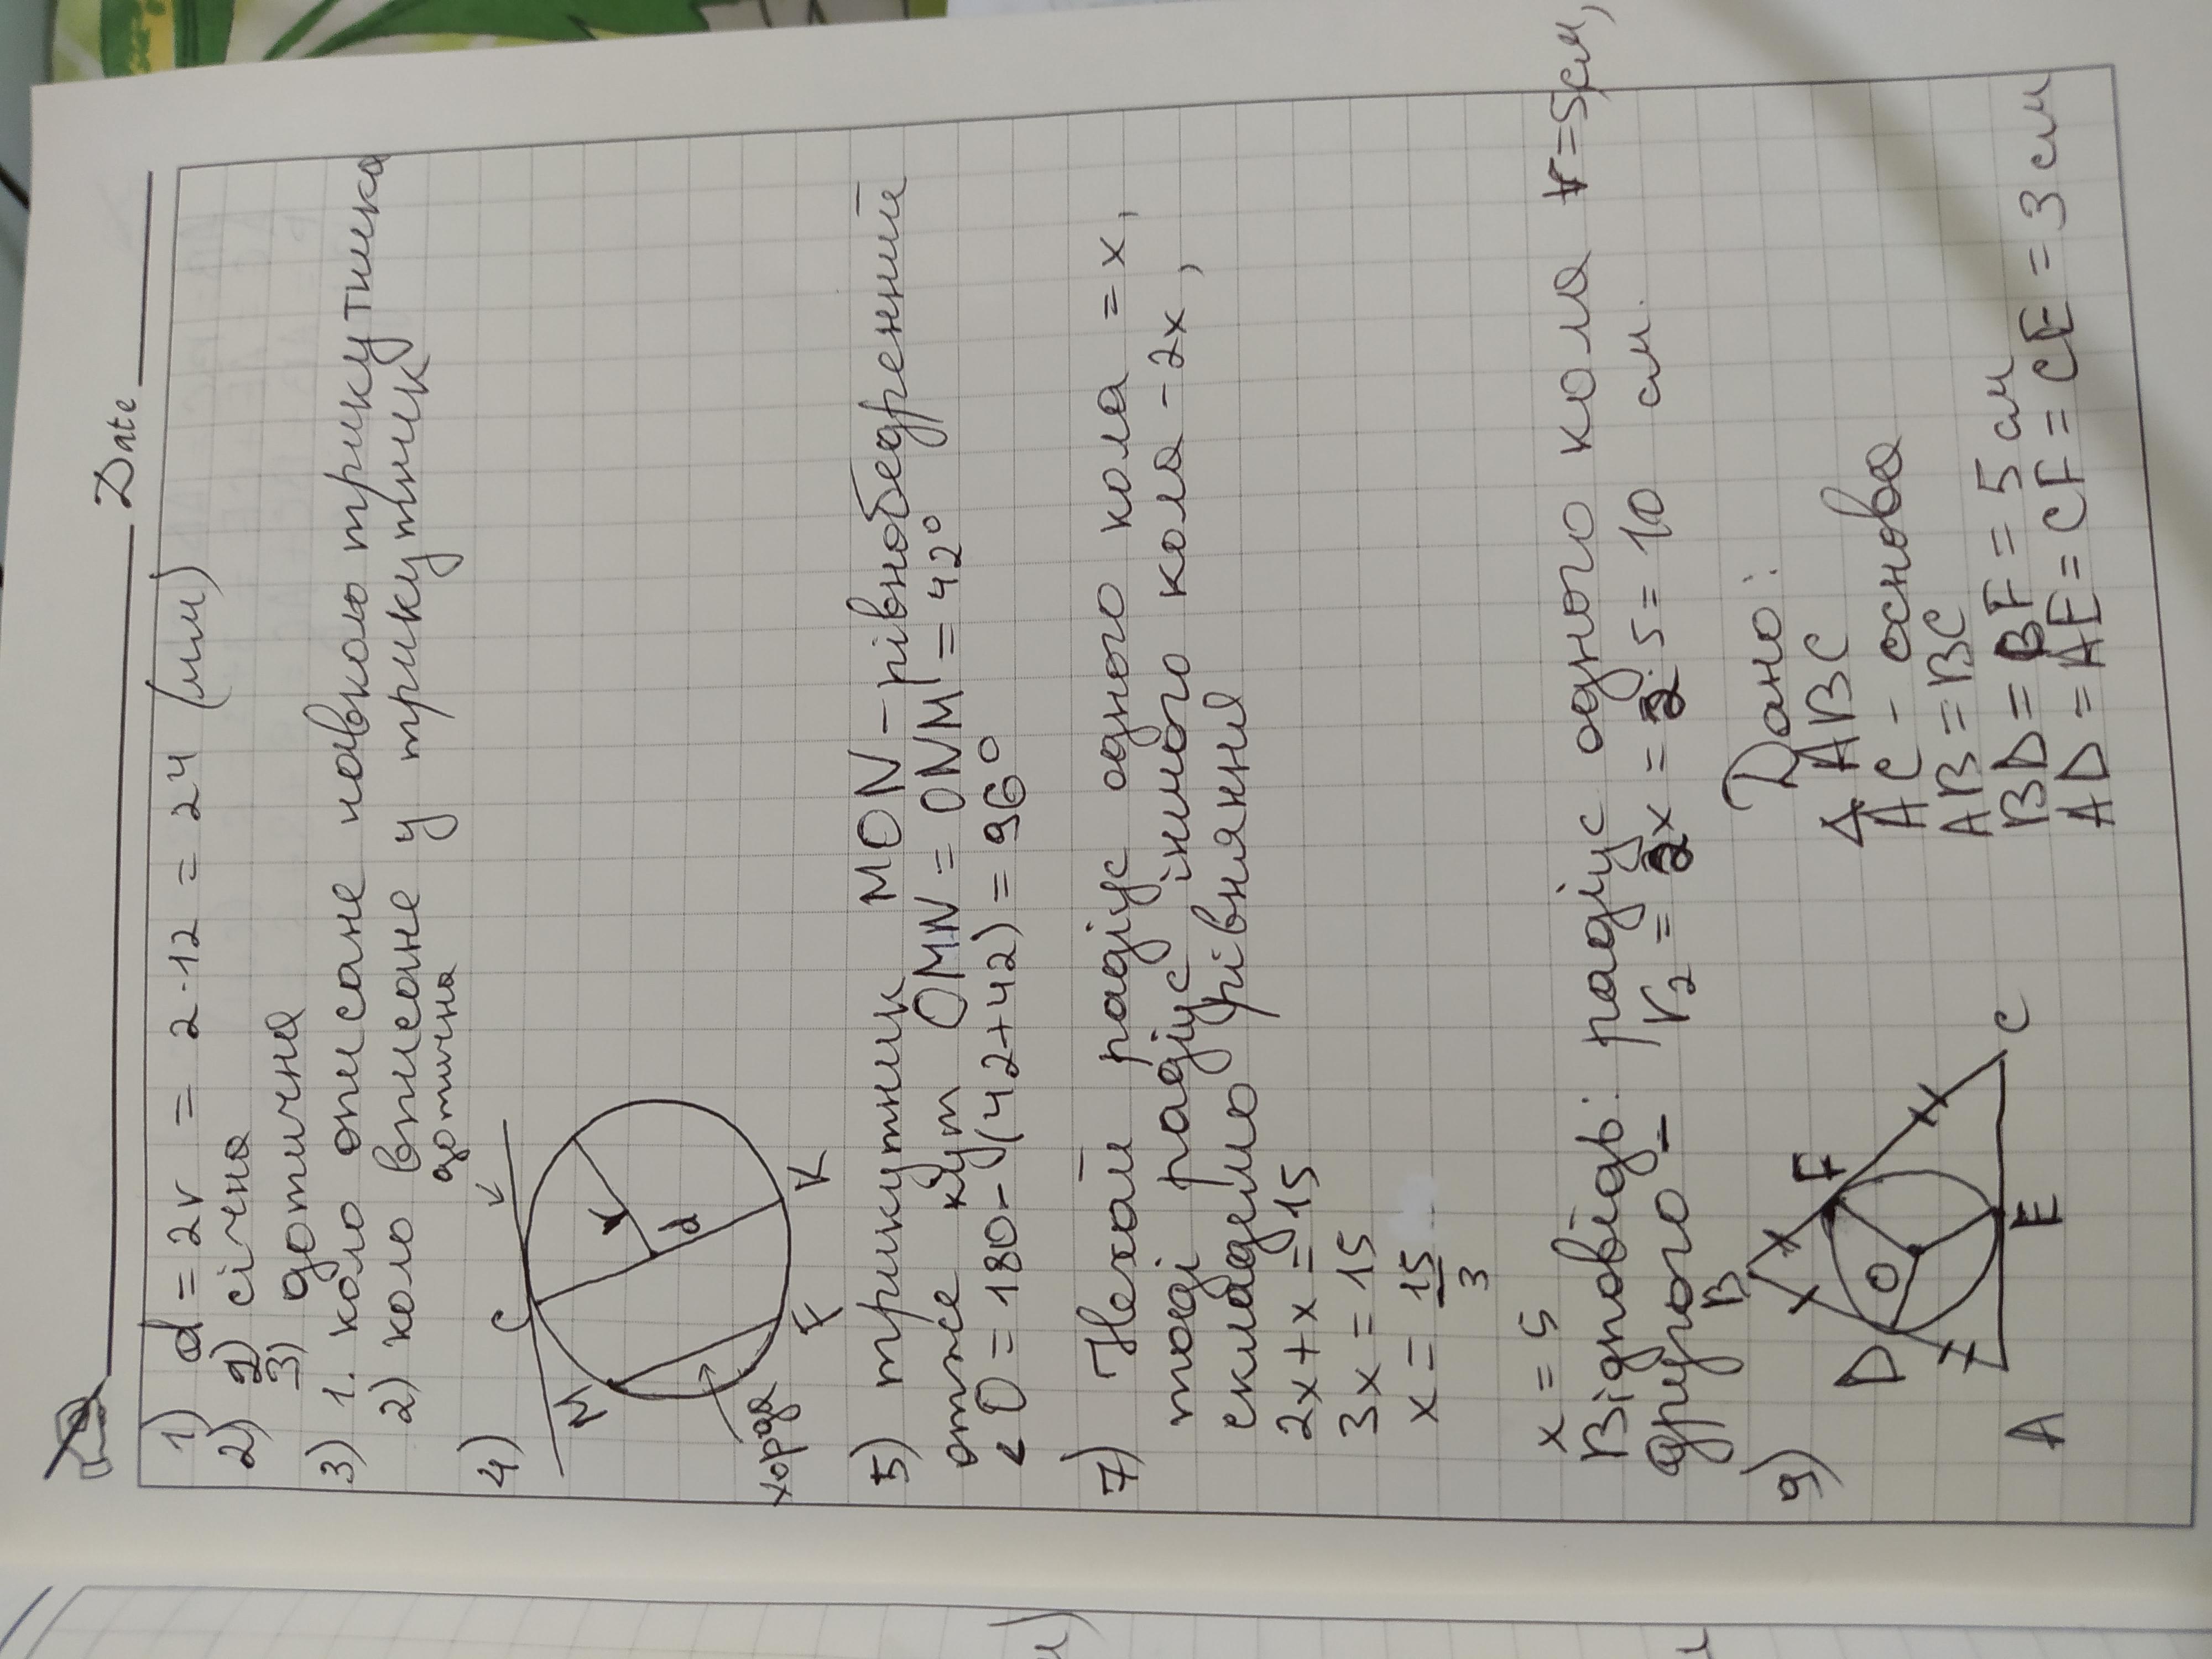 Date
1) d = 2r = 2·12 = 24 (мм)
2) 2) січна
3) дотична
3) 1. коло описане навколо трикутника
2) коло вписане у трикутник
4)
дотична
C
M
r
d
хорда
F
K
5) трикутник MON - рівнобедрений
отже кут OMN = ONM = 42°
<O = 180-(42+42) = 96°
7) Нехай радіус одного кола = x,
тоді радіус іншого кола - 2x,
складемо рівняння
2x + x = 15
3x = 15
x = 15/3
x = 5
Відповідь: радіус одного кола r = 5см,
другого - r₂ = 2x = 2·5 = 10 см.
9)
B
D
O
F
A
E
C
Дано:
Δ ABC
AC - основа
AB = BC
BD = BF = 5 см
AD = AE = CF = CE = 3 см